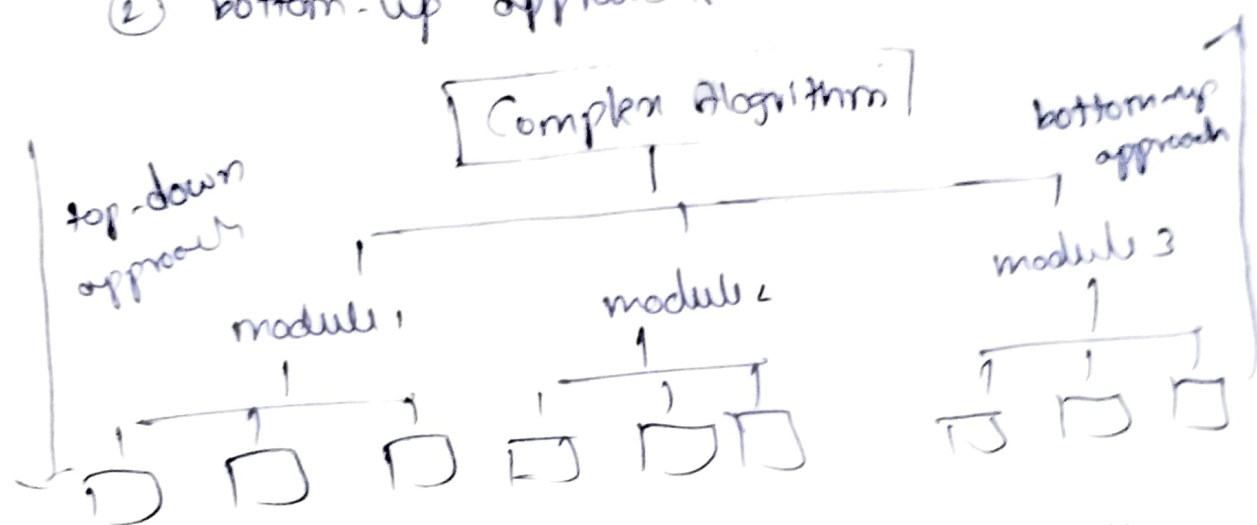 ② bottom-up approach
Complex Alogrithm
top-down
approach
bottom-up
approach
module 1
module 2
module 3